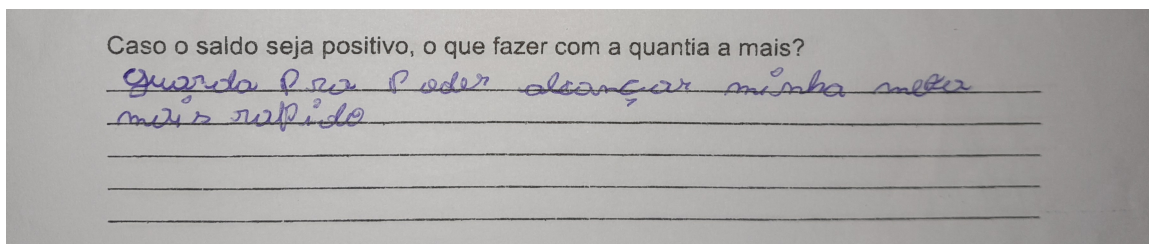 Caso o saldo seja positivo, o que fazer com a quantia a mais?
guarda Pra Poder alcançar minha meta
mais rapido